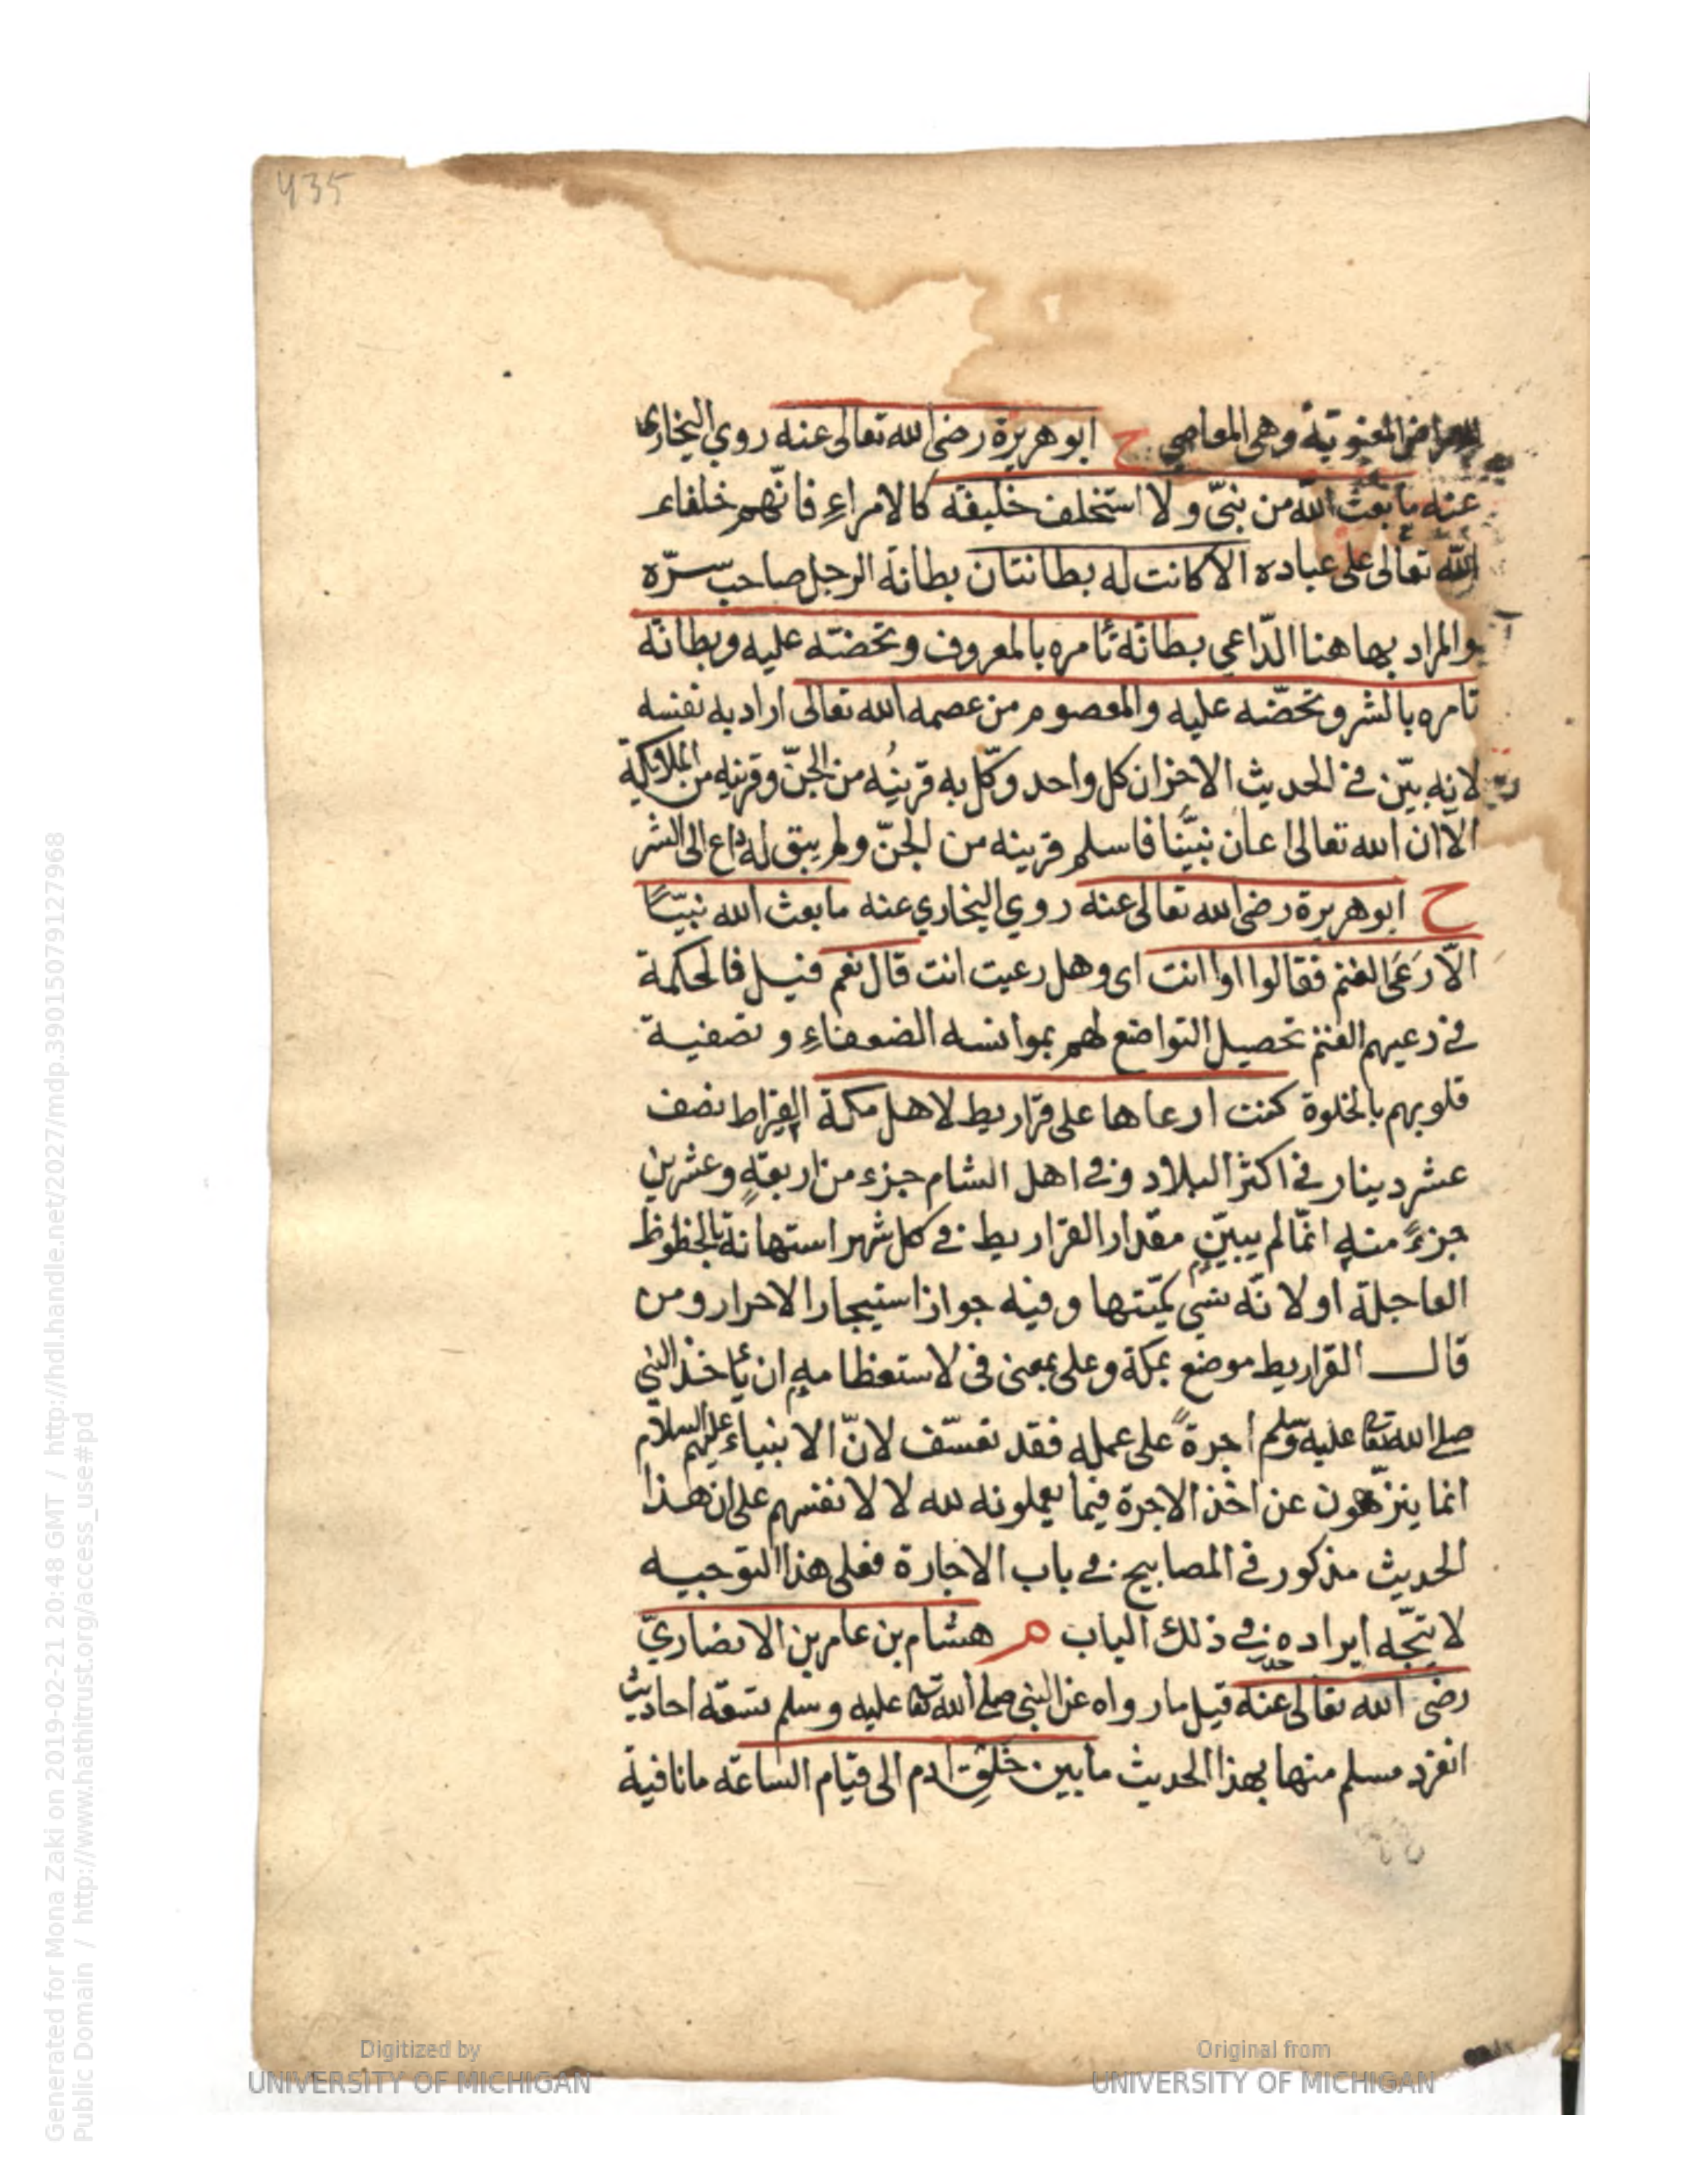 435
المعنوية وهى المعاصي ح ابو هريرة رضى الله تعالى عنه روي البخارى
عنه ما بعث الله من نبىّ ولا استخلف خليفة كالامراءِ فانّهم خلفاء
الله تعالى على عباده الا كانت له بطانتان بطانة الرجل صاحب سرّه
والمراد بها هنا الدّاعي بطانة تأمره بالمعروف وتحضته عليه وبطانة
تامره بالشر وتحضّه عليه والمعصوم من عصمه الله تعالى اراد به نفسه
لانه بيّن في الحديث الاخر ان كل واحد وكّل به قرينُه من الجنّ وقرينه من الملائكة
الا ان الله تعالى اعان نبيّنا فاسلم قرينه من الجنّ ولم يبق له داع الى الشر
ح ابو هريرة رضى الله تعالى عنه روي البخاري عنه ما بعث الله نبيّاً
الّا رَعَى الغنم فقالوا اوا انت اى وهل رعيت انت قال نعم قيل فالحكمة
في رعيهم الغنم تحصيل التواضع لهم بموانسة الضعفاءِ وتصفية
قلوبهم بالخلوة كنت ارعاها على قراريط لاهل مكة القيراط نصف
عشر دينار في اكثر البلاد وفي اهل الشام جزء من اربعةٍ وعشرين
جزءً منه انّما لم يبيّن مقدار القراريط في كل شهر استهانة بالحظوظ
العاجلة او لانّه نسي كمّيتها وفيه جواز استيجار الاحرار ومن
قال القراريط موضع بمكة وعلى بمعنى فى لاستعظامه ان ياخذ النبي
صلى الله تعا عليه وسلم اجرةً على عمله فقد تعسّف لانّ الانبياء عليهم السلام
انما ينزهون عن اخذ الاجرة فيما يعملونه لله لا لانفسهم على ان هذا
الحديث مذكور في المصابيح في باب الاجارة فعلى هذا التوجيه
لا يتجّه ايراده في ذلك الباب م هشام بن عامر بن الانصاريّ
رضى الله تعالى عنه قيل ما رواه عن النبي صلى الله تعا عليه وسلم تسعة احاديث
انفرد مسلم منها بهذا الحديث ما بين خلقِ ادم الى قيام الساعة ما نافية
Digitized by
UNIVERSITY OF MICHIGAN
Original from
UNIVERSITY OF MICHIGAN
Generated for Mona Zaki on 2019-02-21 20:48 GMT / http://hdl.handle.net/2027/mdp.39015079127968
Public Domain / http://www.hathitrust.org/access_use#pd